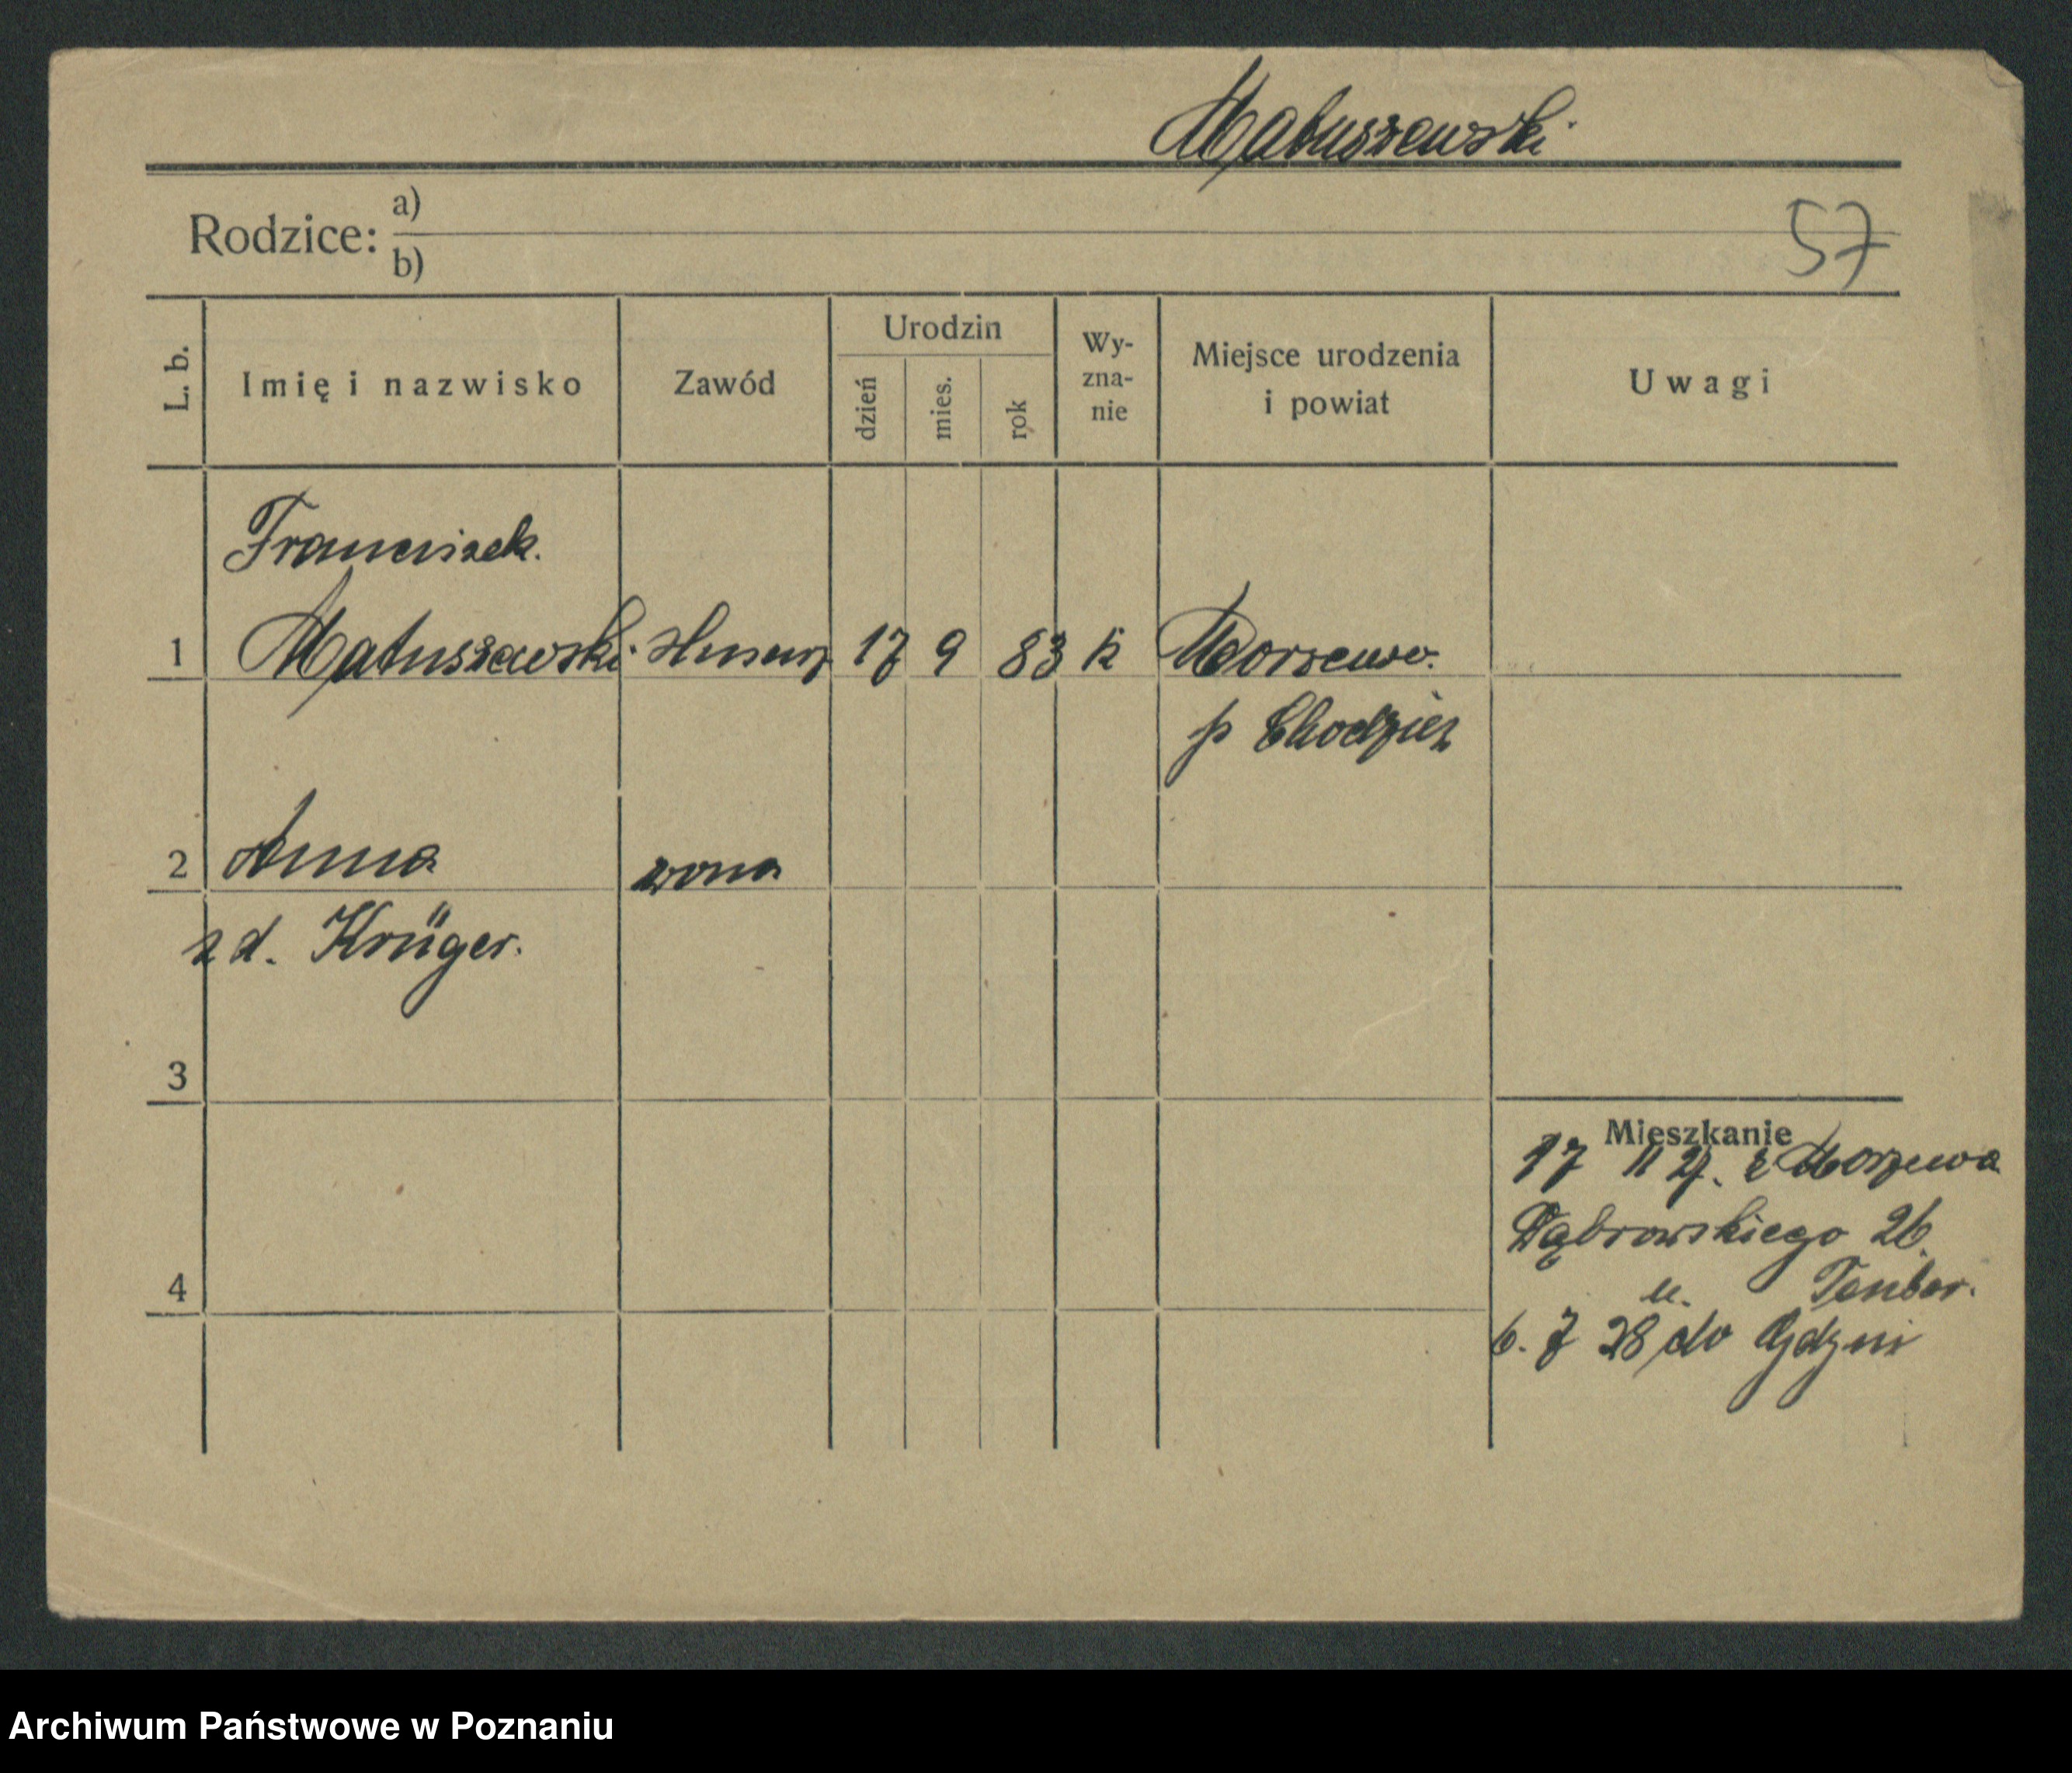 Matuszewski
Rodzice: a)
b)
57
L. b.
Imię i nazwisko
Zawód
Urodzin
dzień
mies.
rok
Wy-
zna-
nie
Miejsce urodzenia
i powiat
Uwagi
Franciszek.
1 Matuszewski ślusarz 17 9 83 k Morzewo.
p Chodzież
2 Anna żona
z d. Krüger.
3
Mieszkanie
17 11 27. z Morzewa
Dąbrowskiego 26.
u.
4
6. 7 28 do Gdyni
Archiwum Państwowe w Poznaniu